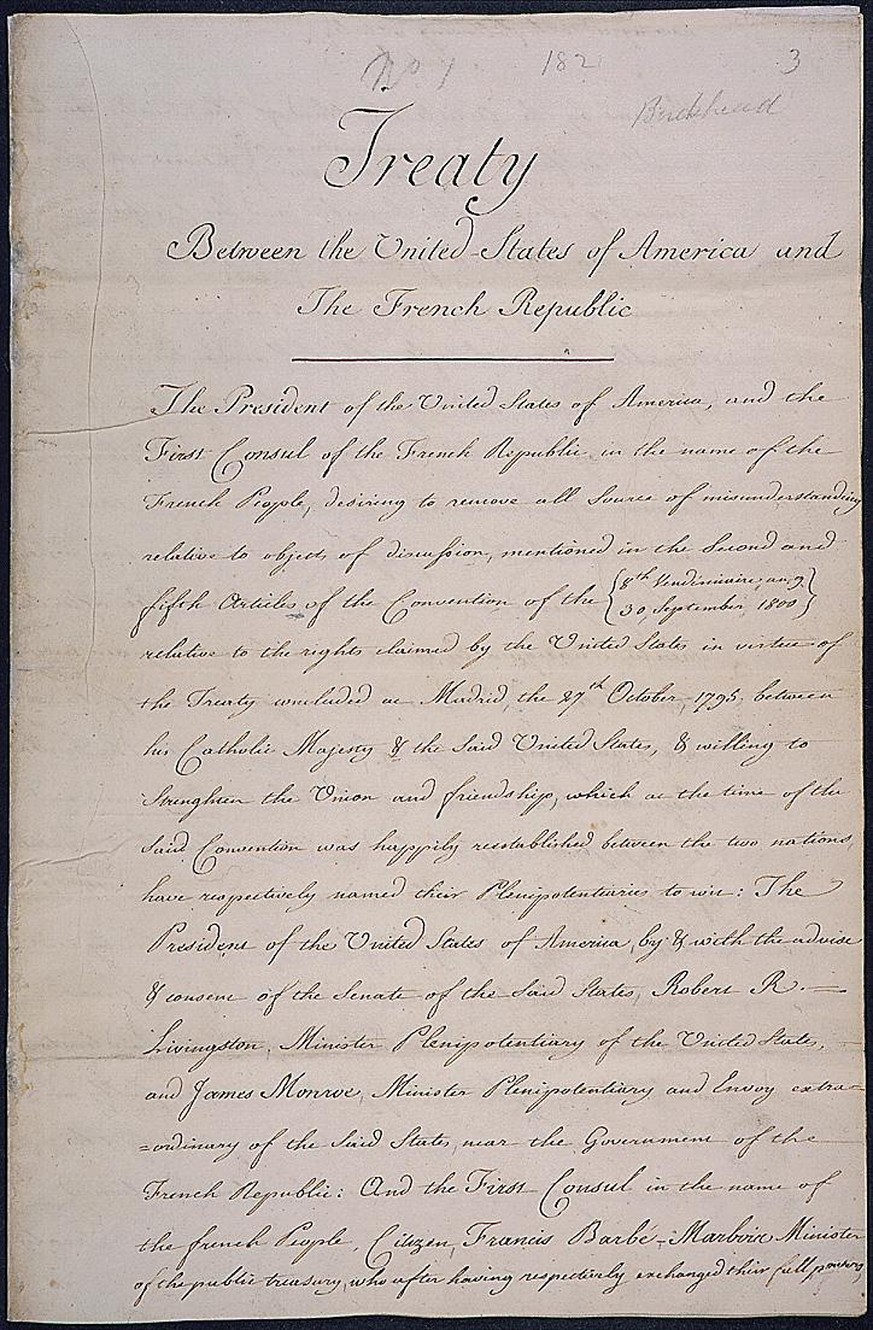 No 1 182 3
Treaty
Between the United States of America and
The French Republic
The President of the United States of America, and the
First Consul of the French Republic in the name of the
French People, desiring to remove all Source of misunderstanding
relative to objects of discussion, mentioned in the Second and
fifth Articles of the Convention of the {8th Vendémiaire, an 9.
30, September, 1800}
relative to the rights claimed by the United States in virtue of
the Treaty concluded at Madrid, the 27th October, 1795, between
his Catholic Majesty & the Said United States, & willing to
Strenghten the Union and friendship, which at the time of the
Said Convention was happily reestablished between the two nations,
have respectively named their Plenipotentiaries to wit: The
President of the United States of America, by & with the advise
& consent of the Senate of the Said States, Robert R.
Livingston, Minister Plenipotentiary of the United States,
and James Monroe, Minister Plenipotentiary and Envoy extra=
=ordinary of the Said States, near the Government of the
French Republic: And the First Consul in the name of
the french People, Citizen, Francis Barbé-Marbois Minister
of the public treasury, who after having respectively exchanged their full powers,